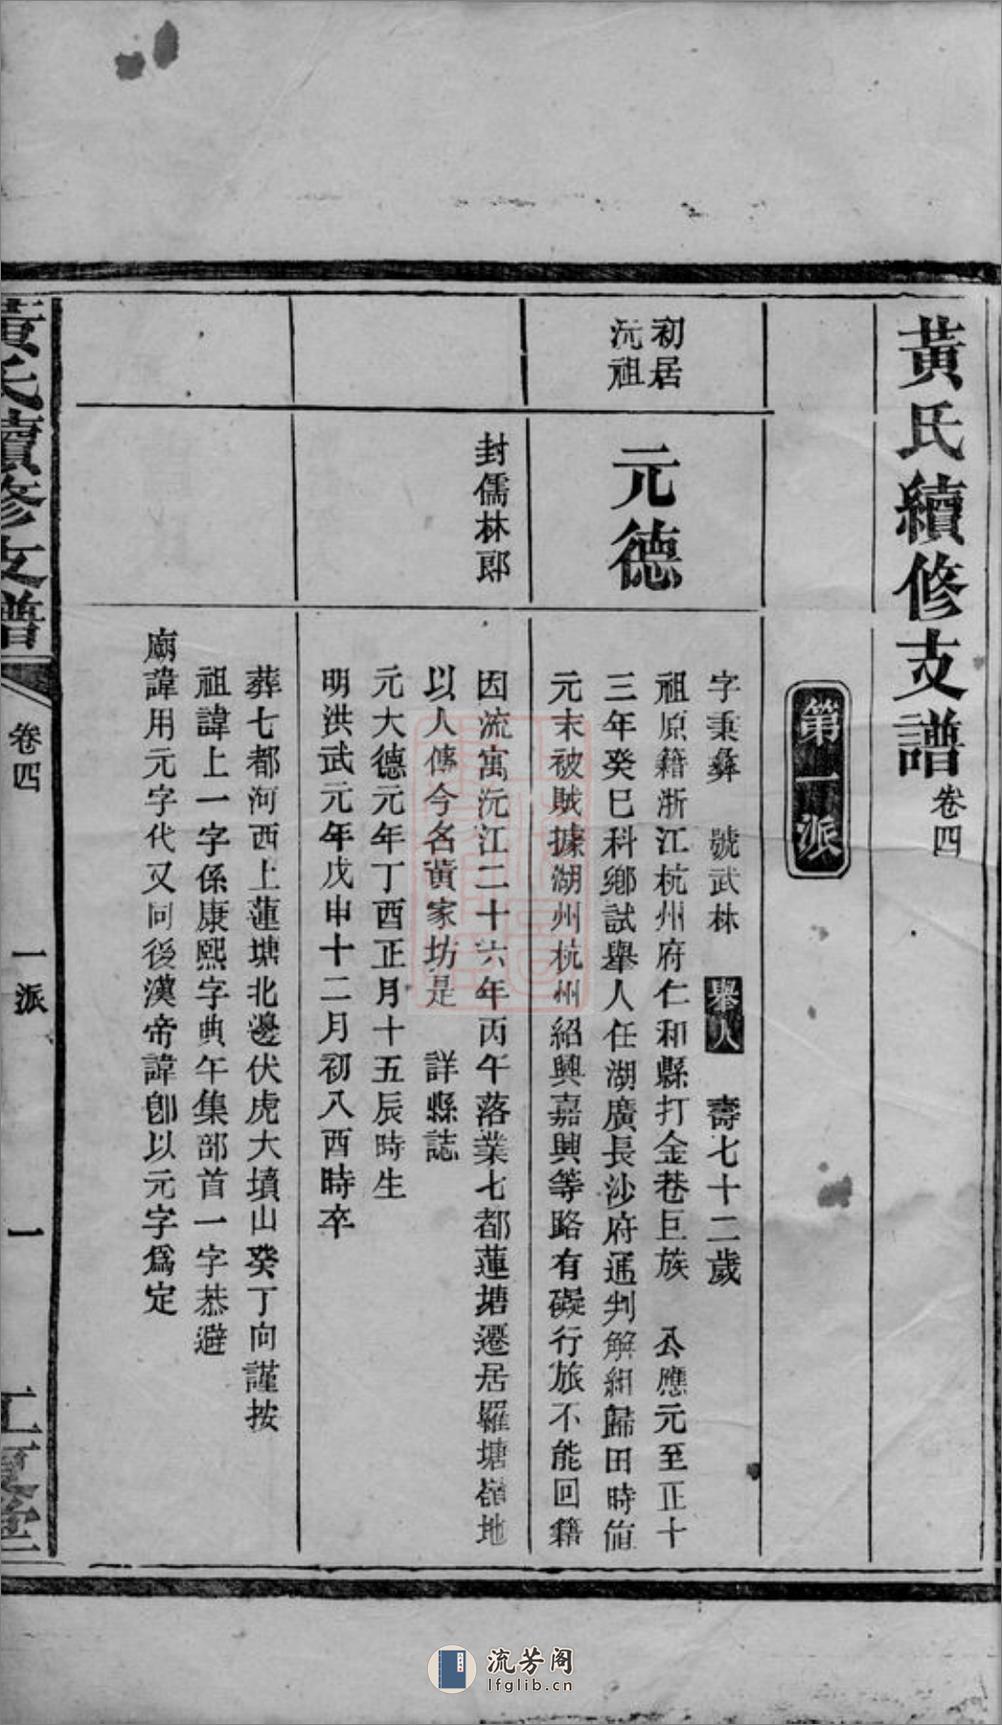 黃氏續修支譜 卷四
第一派
初居
沅祖
元德
字秉彝 號武林 舉人 壽七十二歲
祖原籍浙江杭州府仁和縣打金巷巨族 公應元至正十
三年癸巳科鄉試舉人任湖廣長沙府通判解組歸田時值
元末被賊據湖州杭州紹興嘉興等路有礙行旅不能回籍
封儒林郎
因流寓沅江二十六年丙午落業七都蓮塘遷居羅塘嶺地
以人傳今名黃家坊是 詳縣誌
元大德元年丁酉正月十五辰時生
明洪武元年戊申十二月初八酉時卒
葬七都河西上蓮塘北邊伏虎大墳山癸丁向謹按
祖諱上一字係康熙字典午集部首一字恭避
廟諱用元字代又同後漢帝諱卽以元字爲定
黃氏續修支譜 卷四 一派 一 江夏堂
流芳阁
lfglib.cn